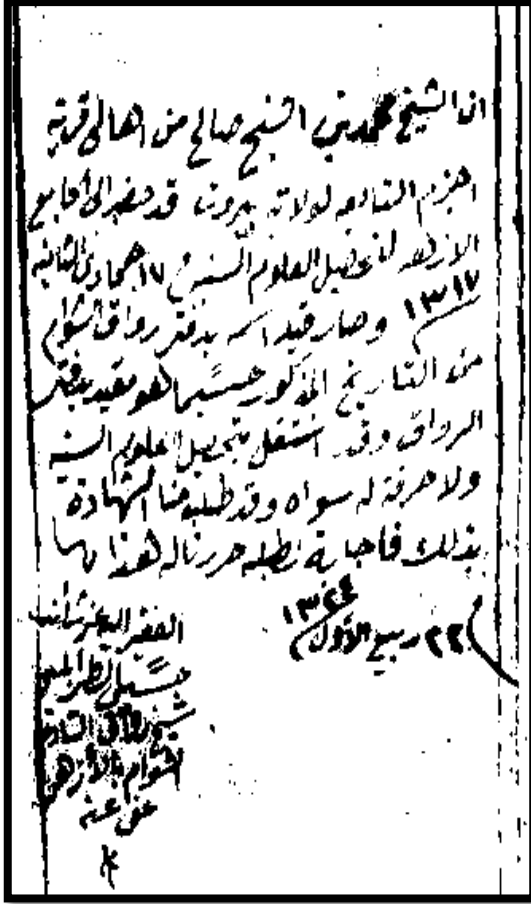 ان الشيخ محمد بن الشيخ صالح من اهالى قرية
اجزم التابعه لولاية بيروت قد حضر الى الجامع
الازهر لتحصيل العلوم السنيه في ١٧ جمادى الثانيه
١٣١٧ وصار قيد اسمه بدفتر رواق الشوام
من التاريخ المذكور حسبما هو مقيد بدفتر
الرواق وقد اشتغل بتحصيل العلوم السنيه
ولا حرفة له سواه وقد طلب منا الشهادة
بذلك فاجابة لطلبه حررنا له هذا بها
٢٢ ربيع الأول ١٣٢٤
الفقير اليه عز شأنه
شيخ رواق السادة
الشوام بالأزهر
عفى عنه